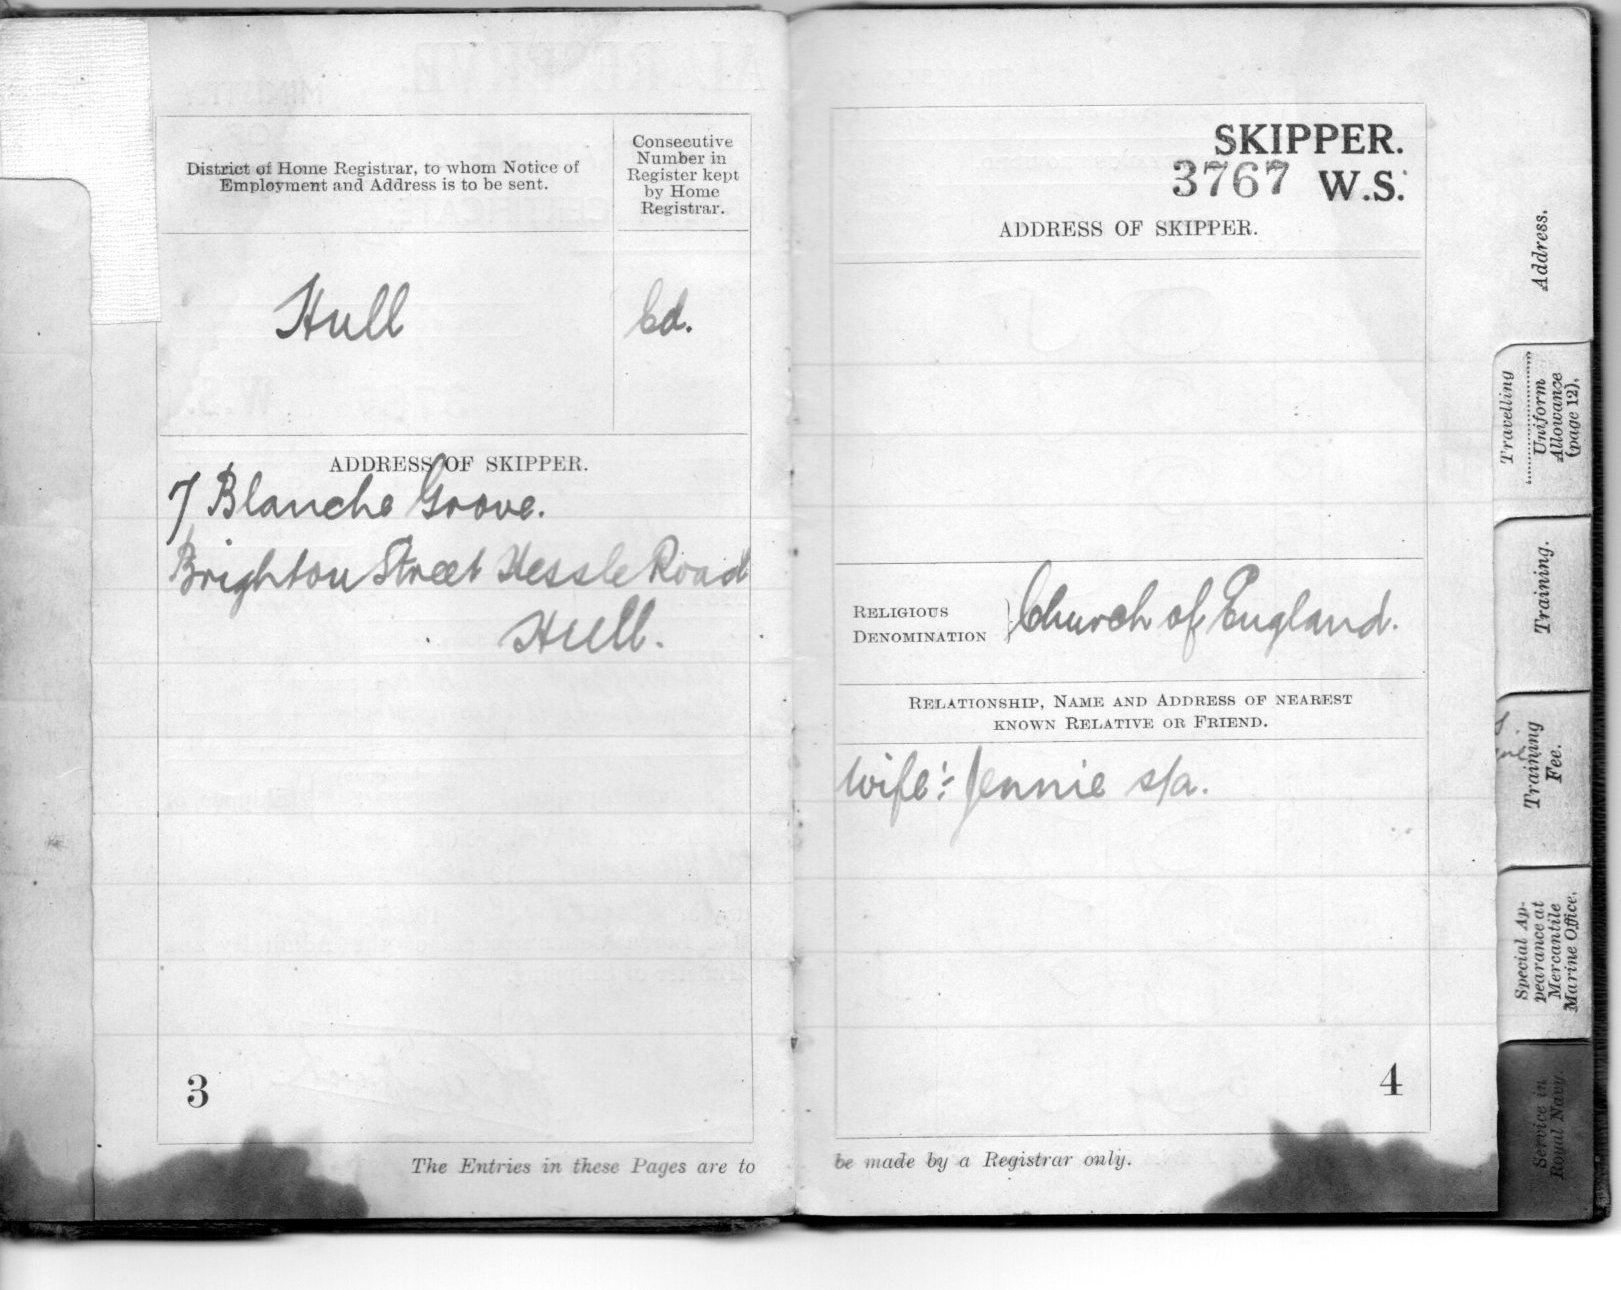 District of Home Registrar, to whom Notice of
Employment and Address is to be sent.
Consecutive
Number in
Register kept
by Home
Registrar.
Hull
Cd.
ADDRESS OF SKIPPER.
7 Blanche Grove.
Brighton Street Hessle Road
Hull.
3
The Entries in these Pages are to
SKIPPER.
3767 W.S.
ADDRESS OF SKIPPER.
RELIGIOUS
DENOMINATION
Church of England.
RELATIONSHIP, NAME AND ADDRESS OF NEAREST
KNOWN RELATIVE OR FRIEND.
Wife:- Jennie s/a.
4
be made by a Registrar only.
Address.
Travelling
Uniform
Allowance
(page 12).
Training.
Training
Fee.
Special Ap-
pearance at
Mercantile
Marine Office.
Service in
Royal Navy.